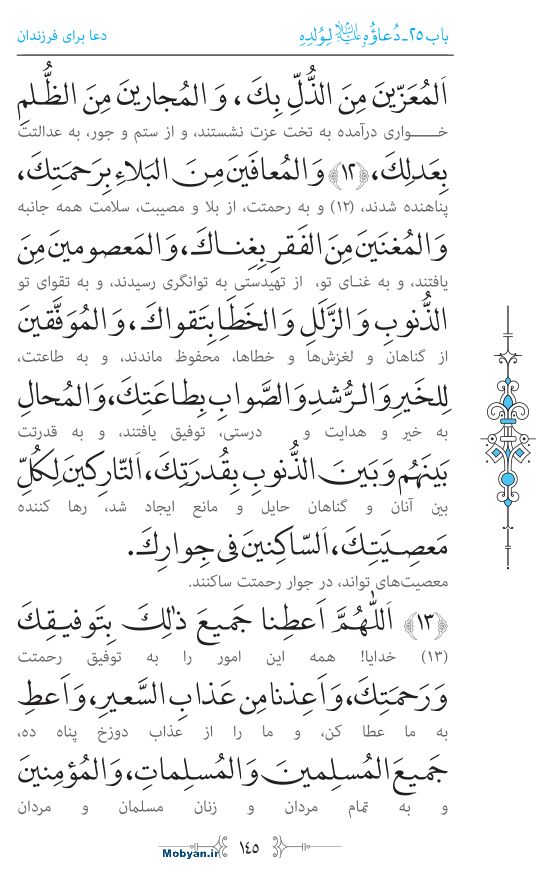 باب ۲۵ـ دُعاؤُهُ عليه‌السلام لِوُلدِهِ
دعا برای فرزندان
اَلمُعَزّينَ مِنَ الذُّلِّ بِكَ، وَ المُجارينَ مِنَ الظُّلمِ
خـــواری درآمده به تخت عزت نشستند، و از ستم و جور، به عدالتت
بِعَدلِكَ، ﴿۱۲﴾ وَ المُعافَينَ مِنَ البَلاءِ بِرَحمَتِكَ،
پناهنده شدند، (۱۲) و به رحمتت، از بلا و مصیبت، سلامت همه جانبه
وَ المُغنَينَ مِنَ الفَقرِ بِغِناكَ، وَ المَعصومينَ مِنَ
یافتند، و به غنـای تو، از تهیدستی به توانگری رسیدند، و به تقوای تو
الذُّنوبِ وَ الزَّلَلِ وَ الخَطَاِ بِتَقواكَ، وَ المُوَفَّقينَ
از گناهان و لغزش‌ها و خطاها، محفوظ ماندند، و به طاعتت،
لِلخَيرِ وَ الرُّشدِ وَ الصَّوابِ بِطاعَتِكَ، وَ المُحالِ
به خیر و هدایت و درستی، توفیق یافتند، و به قدرتت
بَينَهُم وَ بَينَ الذُّنوبِ بِقُدرَتِكَ، اَلتّارِكينَ لِكُلِّ
بین آنان و گناهان حایل و مانع ایجاد شد، رها کننده
مَعصِيَتِكَ، اَلسّاكِنينَ فى جِوارِكَ.
معصیت‌های تواند، در جوار رحمتت ساکنند.
﴿۱۳﴾ اَللّٰهُمَّ اَعطِنا جَميعَ ذٰلِكَ بِتَوفيقِكَ
(۱۳) خدایا! همه این امور را به توفیق رحمتت
وَ رَحمَتِكَ، وَ اَعِذنا مِن عَذابِ السَّعيرِ، وَ اَعطِ
به ما عطا کن، و ما را از عذاب دوزخ پناه ده،
جَميعَ المُسلِمينَ وَ المُسلِماتِ، وَ المُؤمِنينَ
و به تمام مردان و زنان مسلمان و مردان
۱۴۵
Mobyan.ir